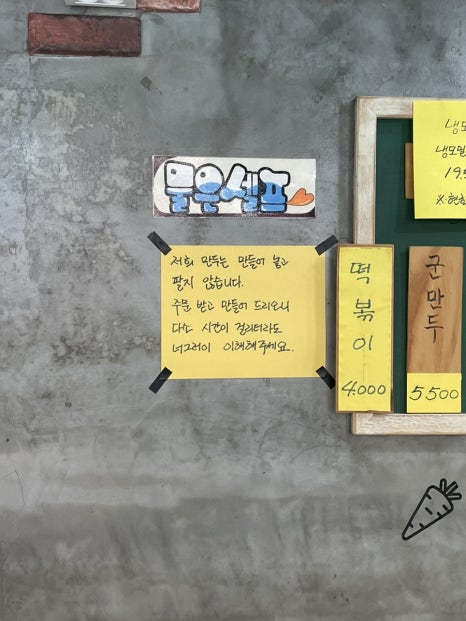 물은셀프
저희 만두는 만들어 놓고
팔지 않습니다.
주문 받고 만들어 드리오니
다소 시간이 걸리더라도
너그러이 이해해주세요.
떡볶이
4.000
군만두
5.500
냉모밀